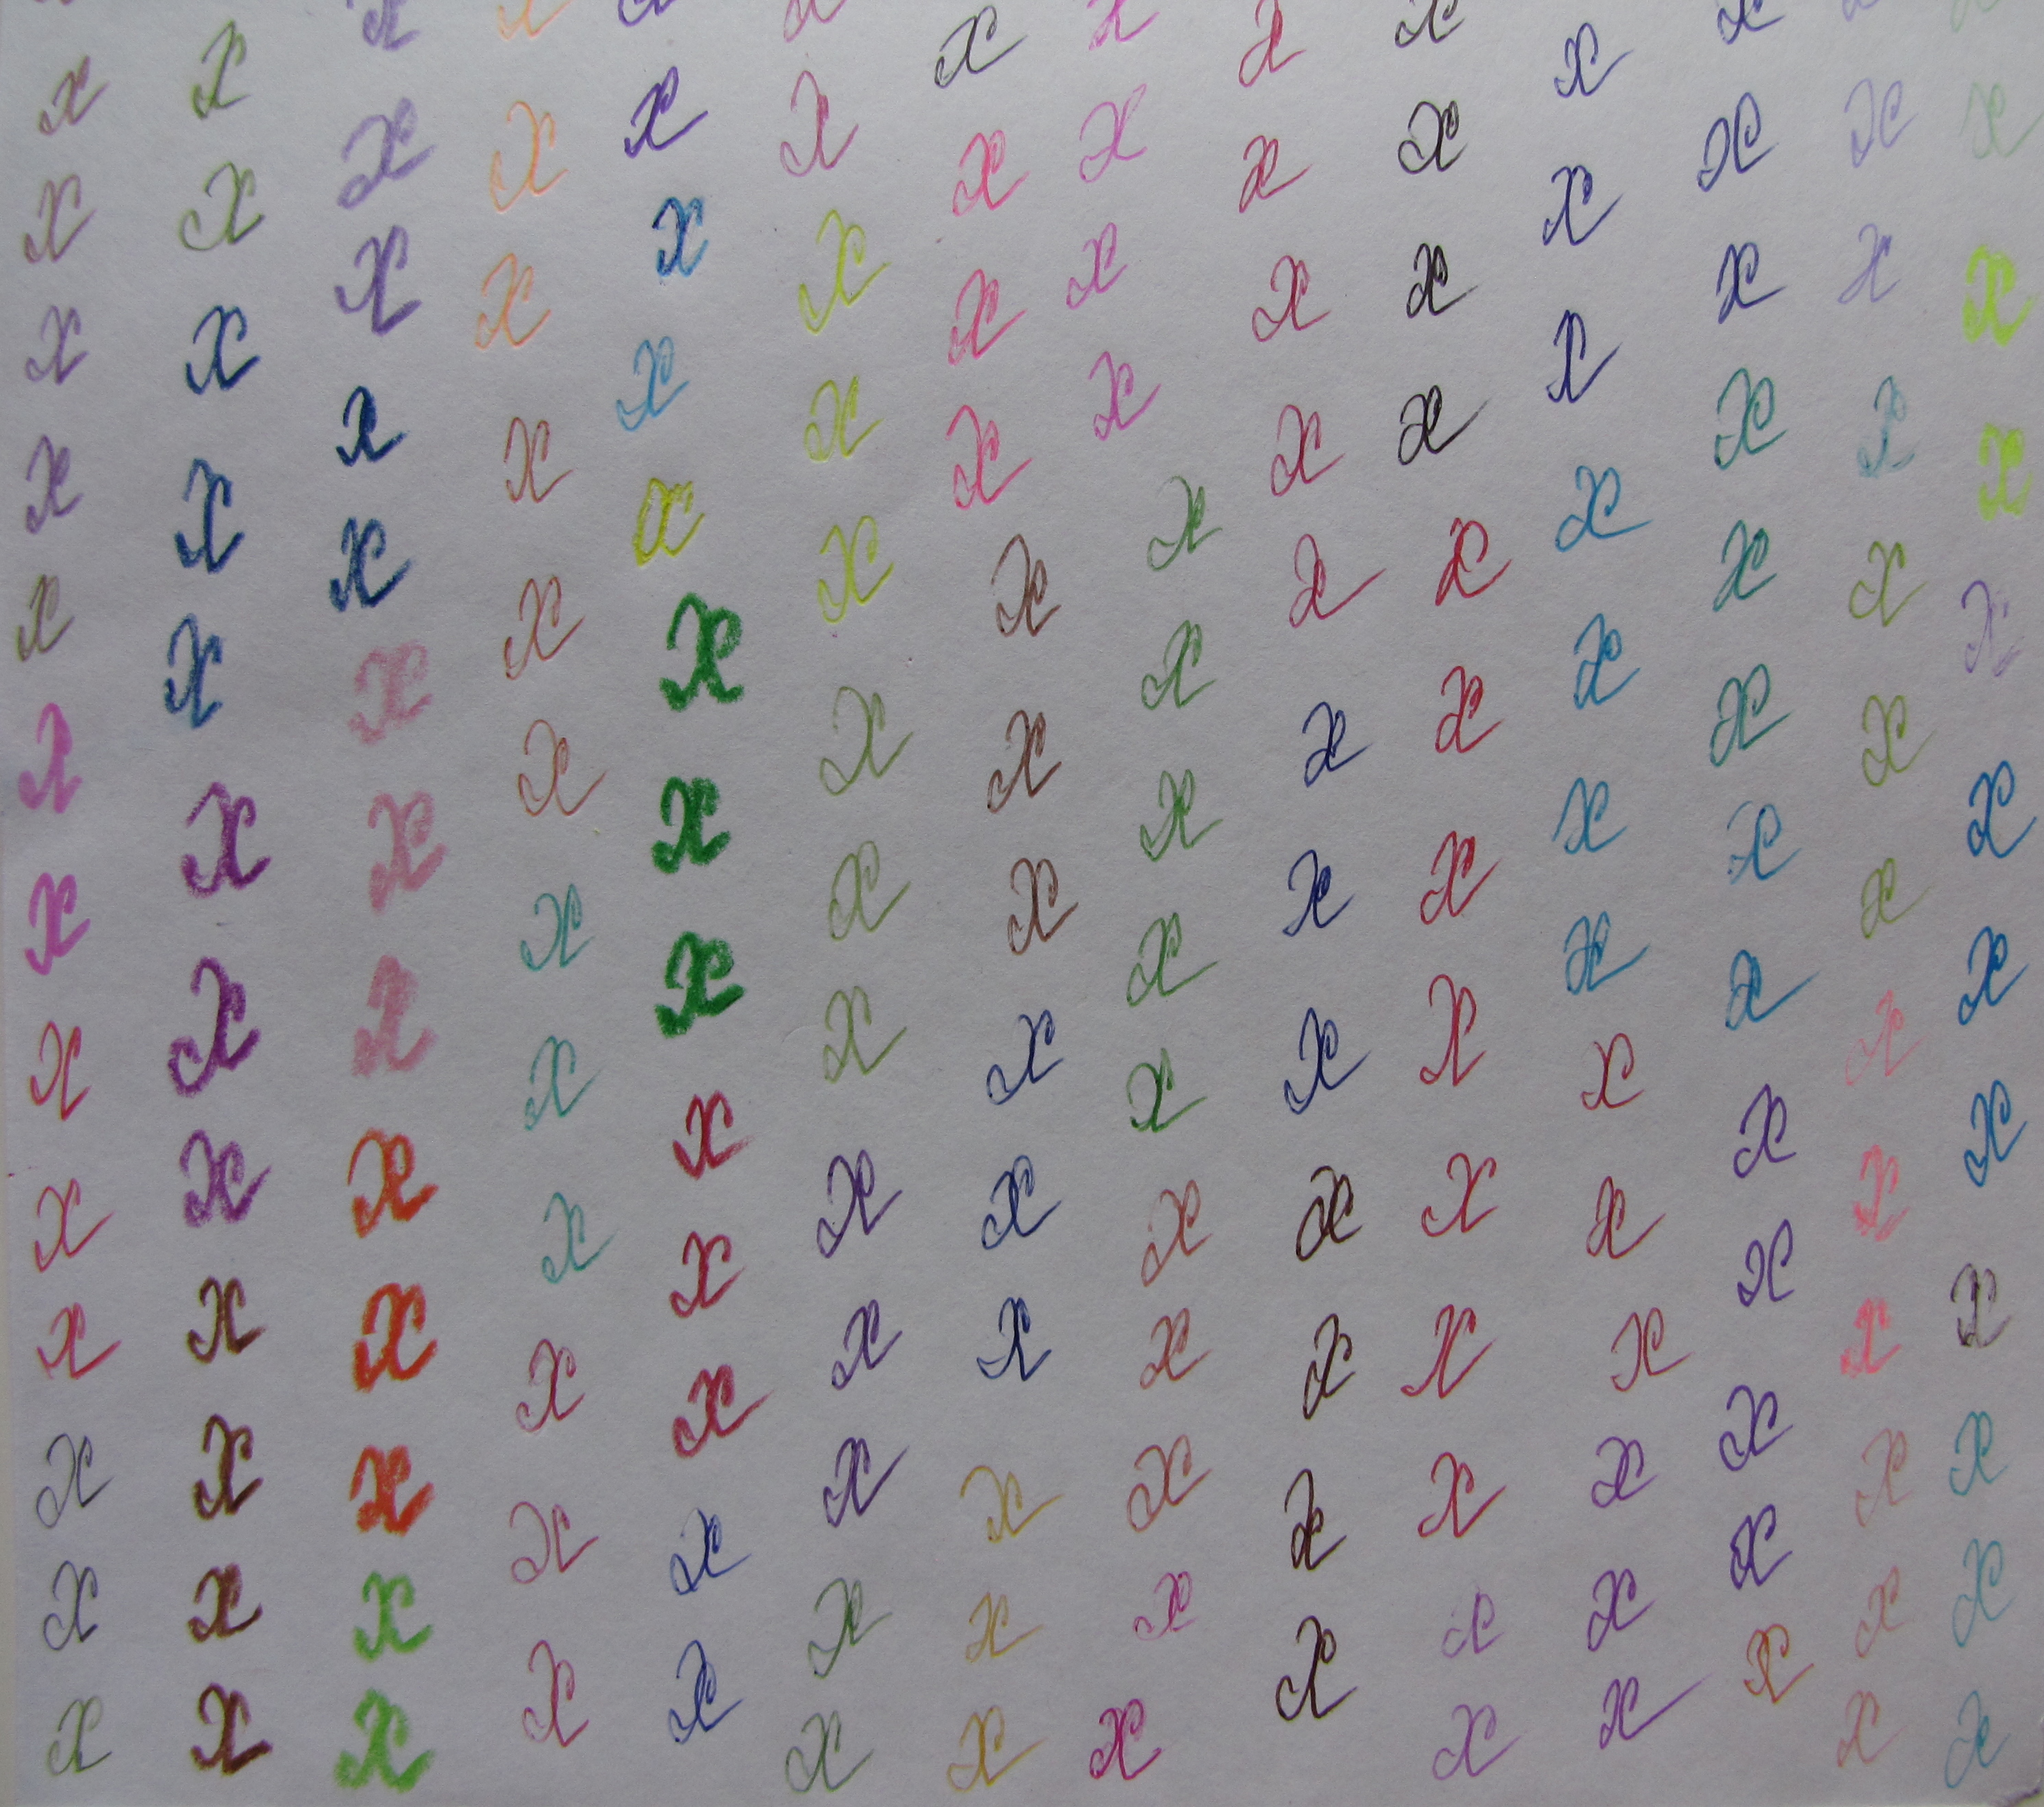 x x x x x x x x x x x x x x
x x x x x x x x x x x x x x
x x x x x x x x x x x x x x
x x x x x x x x x x x x x x
x x x x x x x x x x x x x x
x x x x x x x x x x x x x x
x x x x x x x x x x x x x x
x x x x x x x x x x x x x x
x x x x x x x x x x x x x x
x x x x x x x x x x x x x x
x x x x x x x x x x x x x x
x x x x x x x x x x x x x x
x x x x x x x x x x x x x x